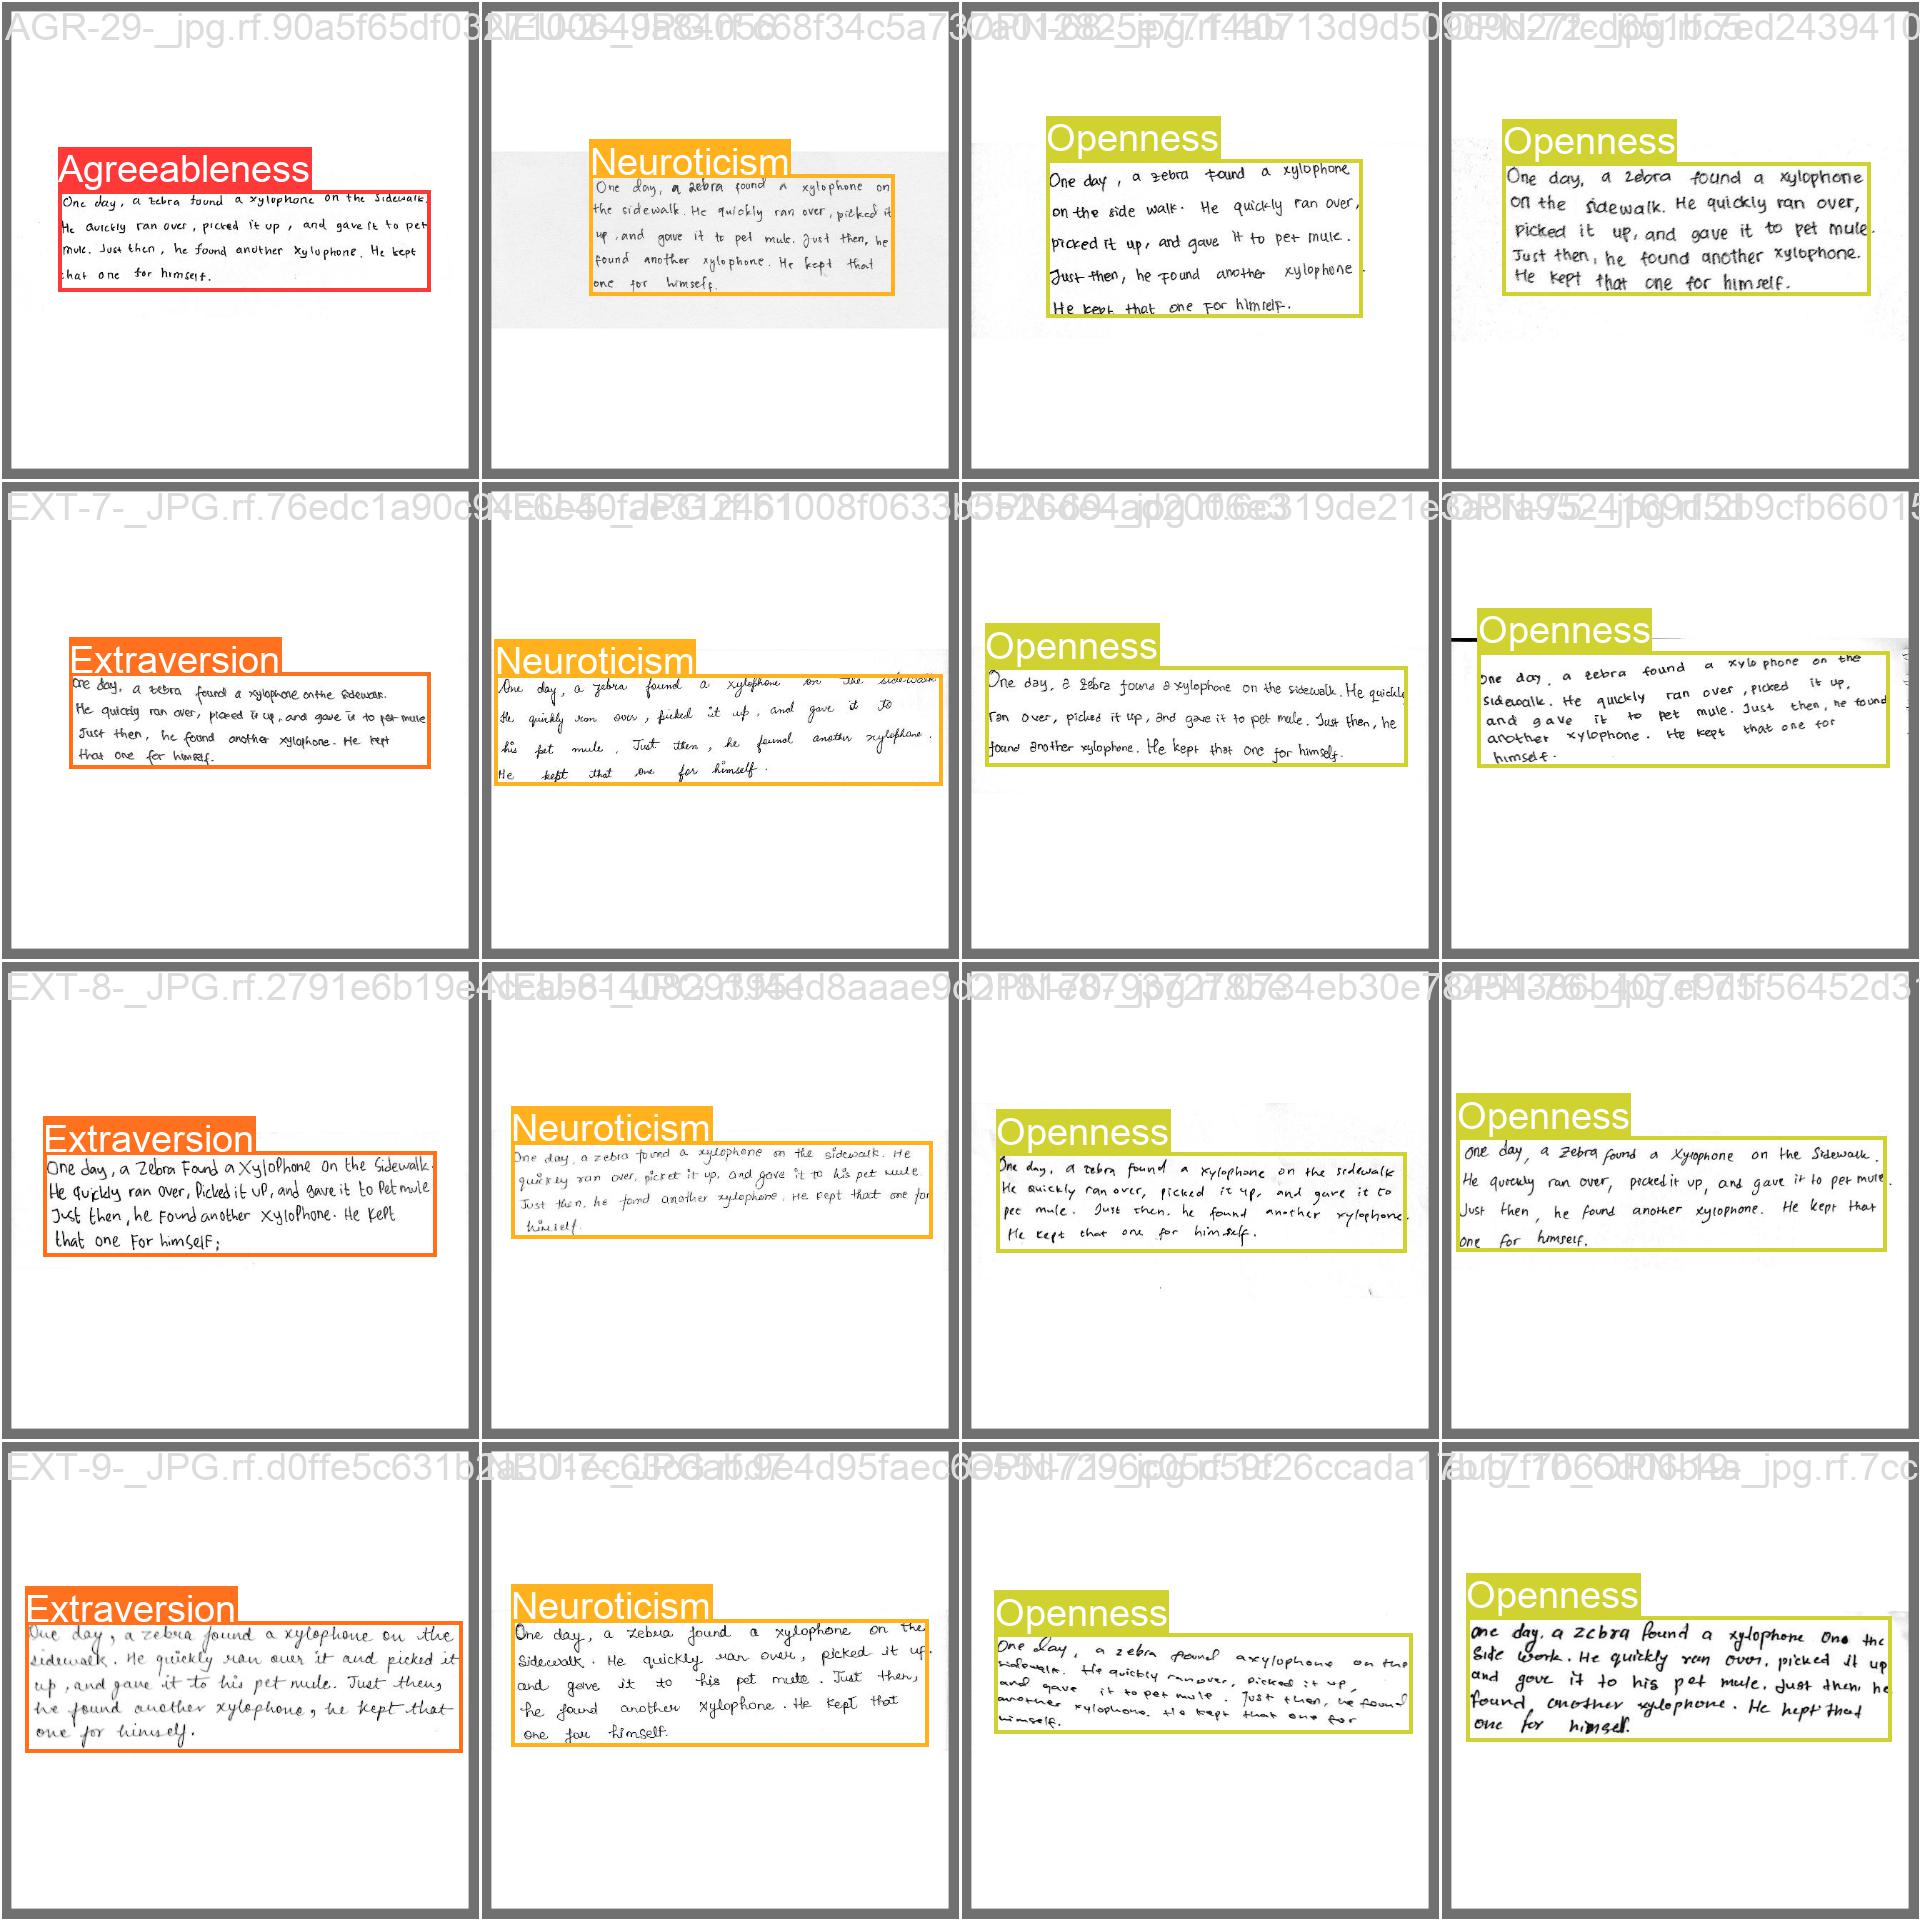 AGR-29-_jpg.rf.90a5f65df03
Agreeableness
One day, a zebra found a xylophone on the sidewalk.
He quickly ran over, picked it up, and gave it to pet
mule. Just then, he found another xylophone. He kept
that one for himself.
Neuroticism
One day, a zebra found a xylophone on
the sidewalk. He quickly ran over, picked it
up, and gave it to pet mule. Just then, he
found another xylophone. He kept that
one for himself.
Openness
One day, a zebra found a xylophone
on the side walk. He quickly ran over,
picked it up, and gave it to pet mule.
Just then, he found another xylophone.
He kept that one for himself.
Openness
One day, a zebra found a xylophone
on the sidewalk. He quickly ran over,
picked it up, and gave it to pet mule.
Just then, he found another xylophone.
He kept that one for himself.
EXT-7-_JPG.rf.76edc1a90c
Extraversion
One day, a zebra found a xylophone on the sidewalk.
He quickly ran over, picked it up, and gave it to pet mule
Just then, he found another xylophone. He kept
that one for himself.
Neuroticism
One day, a zebra found a xylophone on the sidewalk
He quickly ran over, picked it up, and gave it to
his pet mule. Just then, he found another xylophone.
He kept that one for himself.
Openness
One day, a zebra found a xylophone on the sidewalk. He quickly
ran over, picked it up, and gave it to pet mule. Just then, he
found another xylophone. He kept that one for himself.
Openness
One day, a zebra found a xylophone on the
sidewalk. He quickly ran over, picked it up,
and gave it to pet mule. Just then, he found
another xylophone. He kept that one for
himself.
EXT-8-_JPG.rf.2791e6b19e4
Extraversion
One day, a Zebra Found a Xylophone on the Sidewalk.
He quickly ran over, Picked it up, and gave it to Pet mule
Just then, he Found another Xylophone. He kept
that one For himself;
Neuroticism
One day, a zebra found a xylophone on the sidewalk. He
quickly ran over, picket it up, and gave it to his pet mule
Just then, he found another xylophone. He kept that one for
himself.
Openness
One day, a zebra found a xylophone on the sidewalk
He quickly ran over, picked it up, and gave it to
pet mule. Just then, he found another xylophone.
He kept that one for himself.
Openness
One day, a Zebra found a Xyrophone on the Sidewalk.
He quickly ran over, picked it up, and gave it to pet mule.
Just then, he found another xylophone. He kept that
one for himself.
EXT-9-_JPG.rf.d0ffe5c631b
Extraversion
One day, a zebra found a xylophone on the
sidewalk. He quickly ran over it and picked it
up, and gave it to his pet mule. Just then,
he found another xylophone, he kept that
one for himself.
Neuroticism
One day, a zebra found a xylophone on the
Sidewalk. He quickly ran over, picked it up.
and gave it to his pet mule. Just then,
he found another xylophone. He kept that
one for himself.
Openness
One day, a zebra found a xylophone on the
sidewalk. He quickly ran over, picked it up,
and gave it to pet mule. Just then, he found
another xylophone. He kept that one for
himself.
Openness
One day, a zebra found a xylophone One the
Side work. He quickly ran over, picked it up
and gove it to his pet mule. Just then he
found another xylophone. He kept that
one for himself.